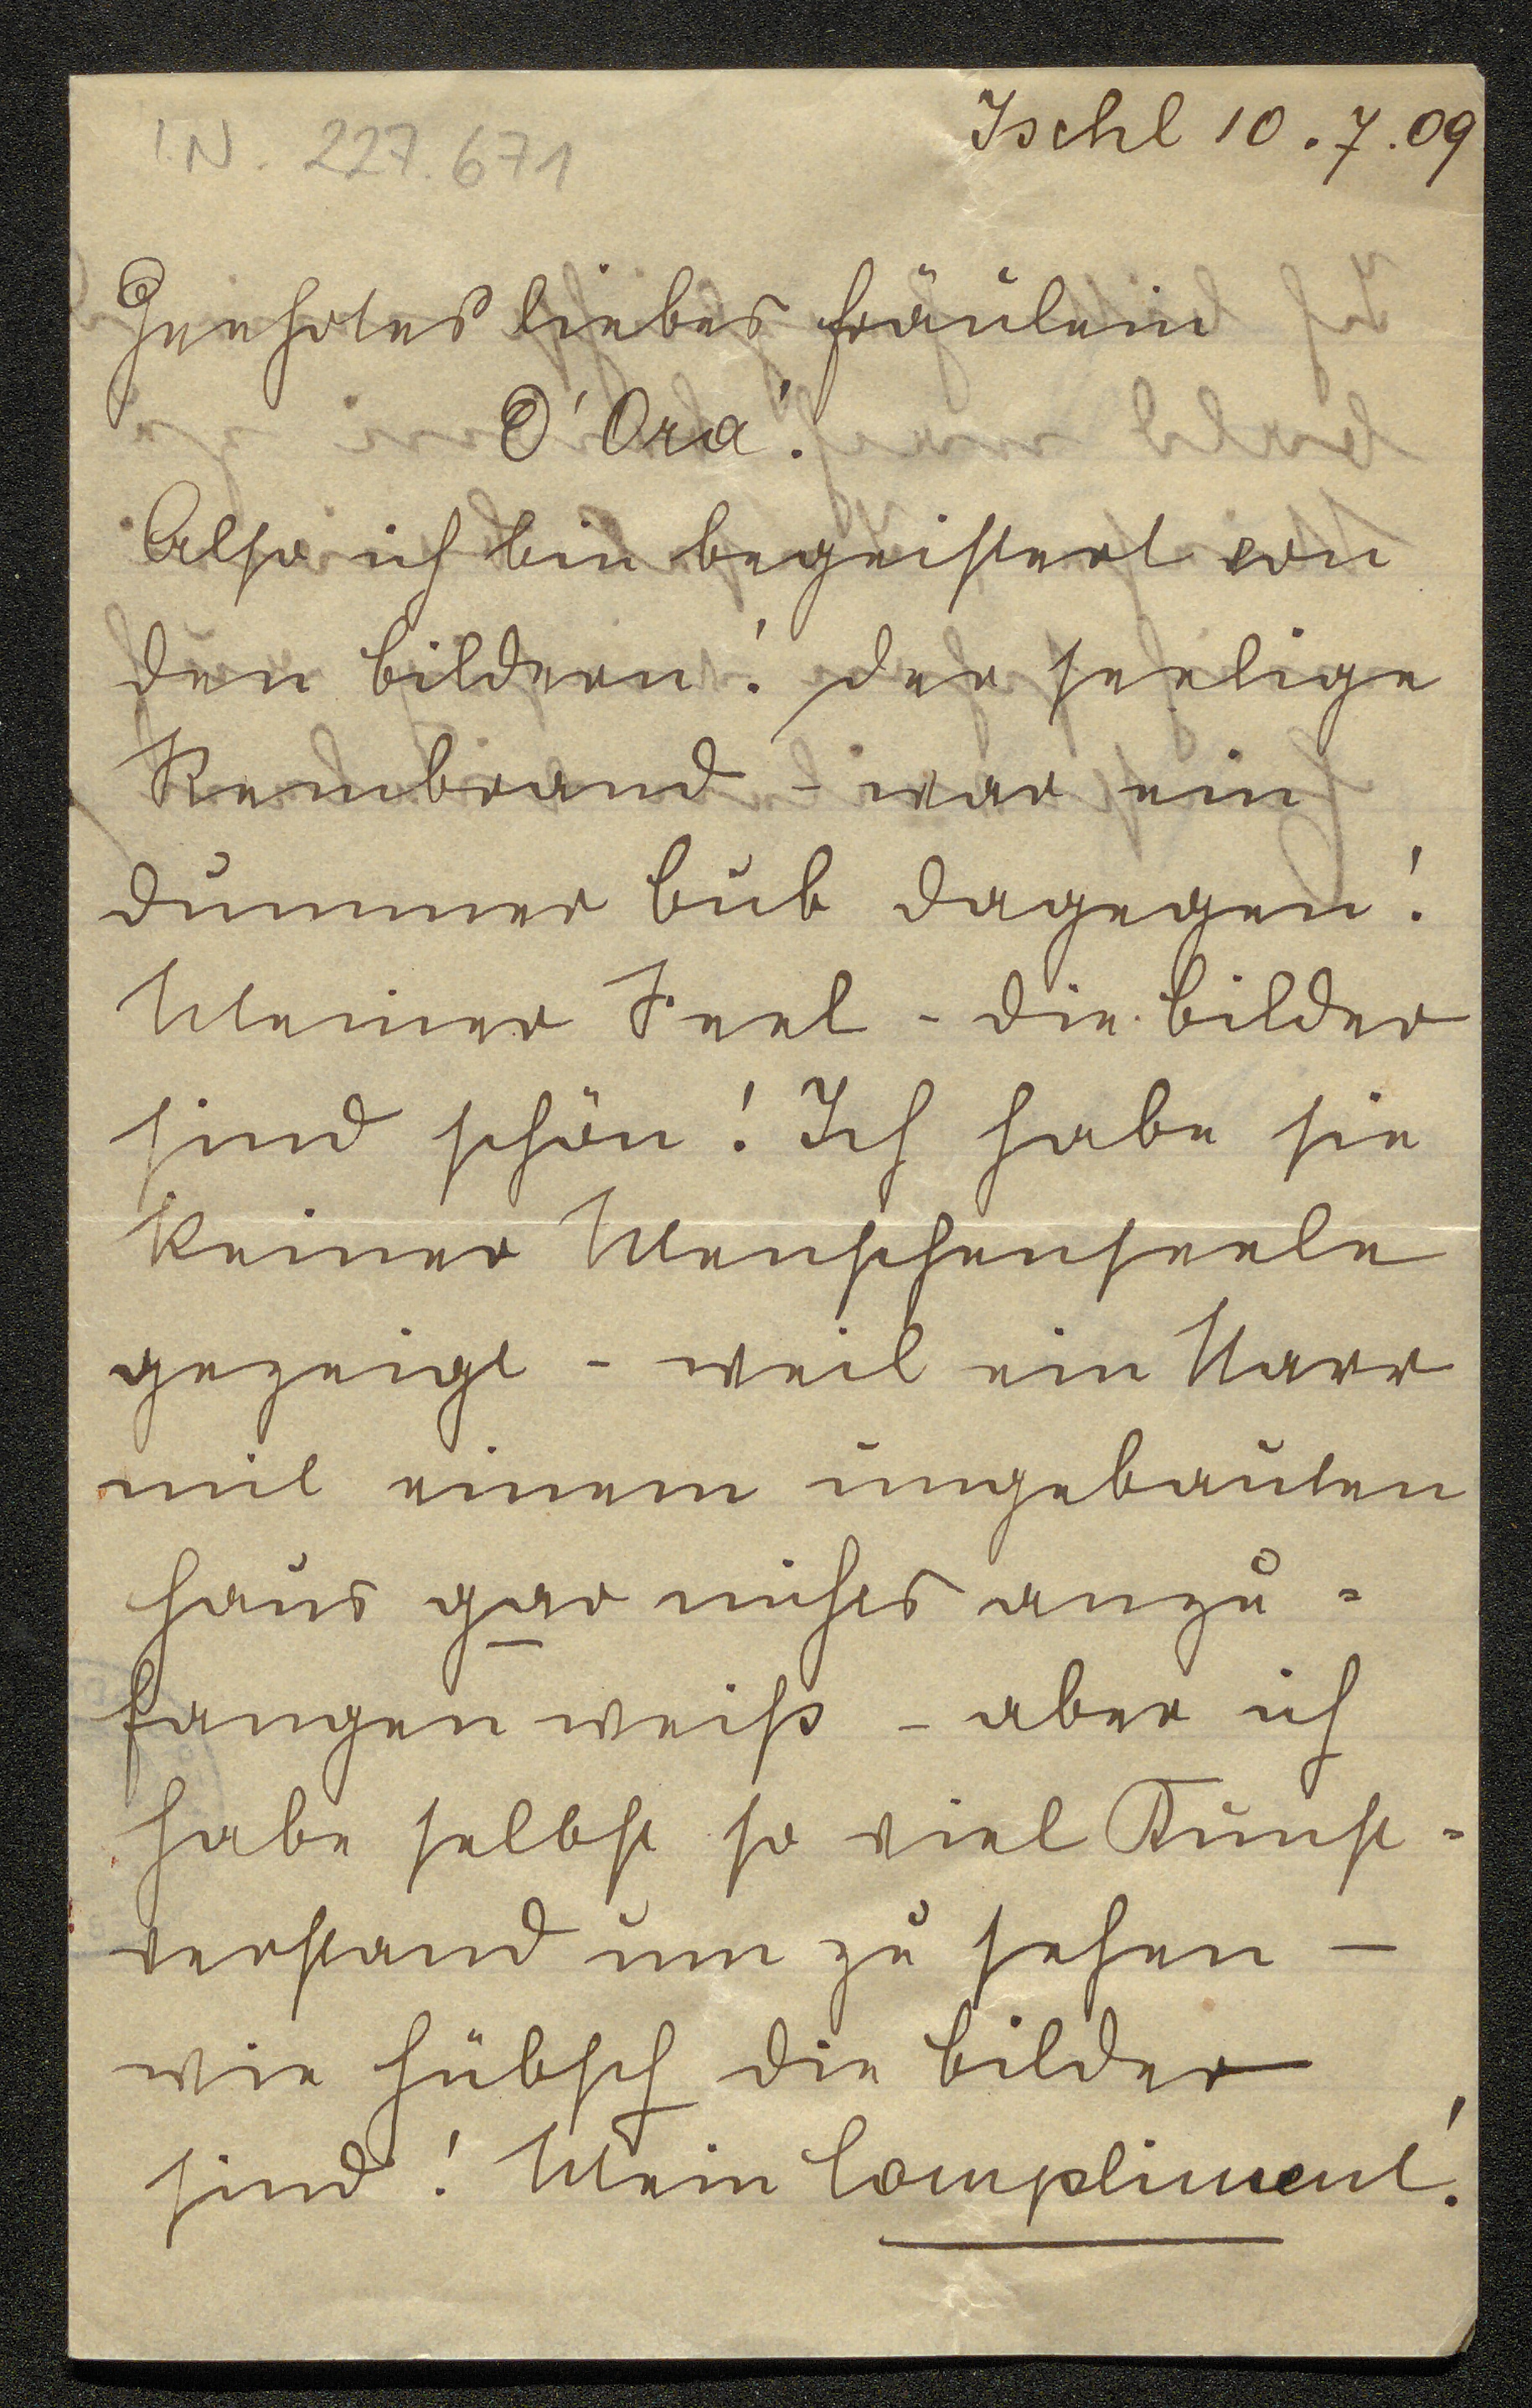 I.N. 227.671
Ischl 10.7.09
Geehrtes liebes Fräulein
D'Ora!
Also ich bin begeistert von
den Bildern! Der seelige
Rembrand - war ein
dummer Bub dagegen!
Meiner Seel - die Bilder
sind schön! Ich habe sie
keiner Menschenseele
gezeigt - weil ein Narr
mit einem ungebauten
Haus gar nichts anzu=
fangen weiß - aber ich
habe selbst so viel Kunst=
verstand um zu sehen —
wie hübsch die Bilder
sind! Mein Compliment!